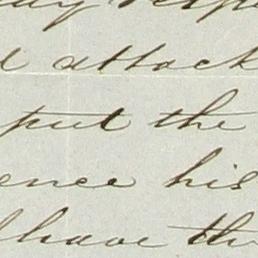 attack
put the
ence his
have th